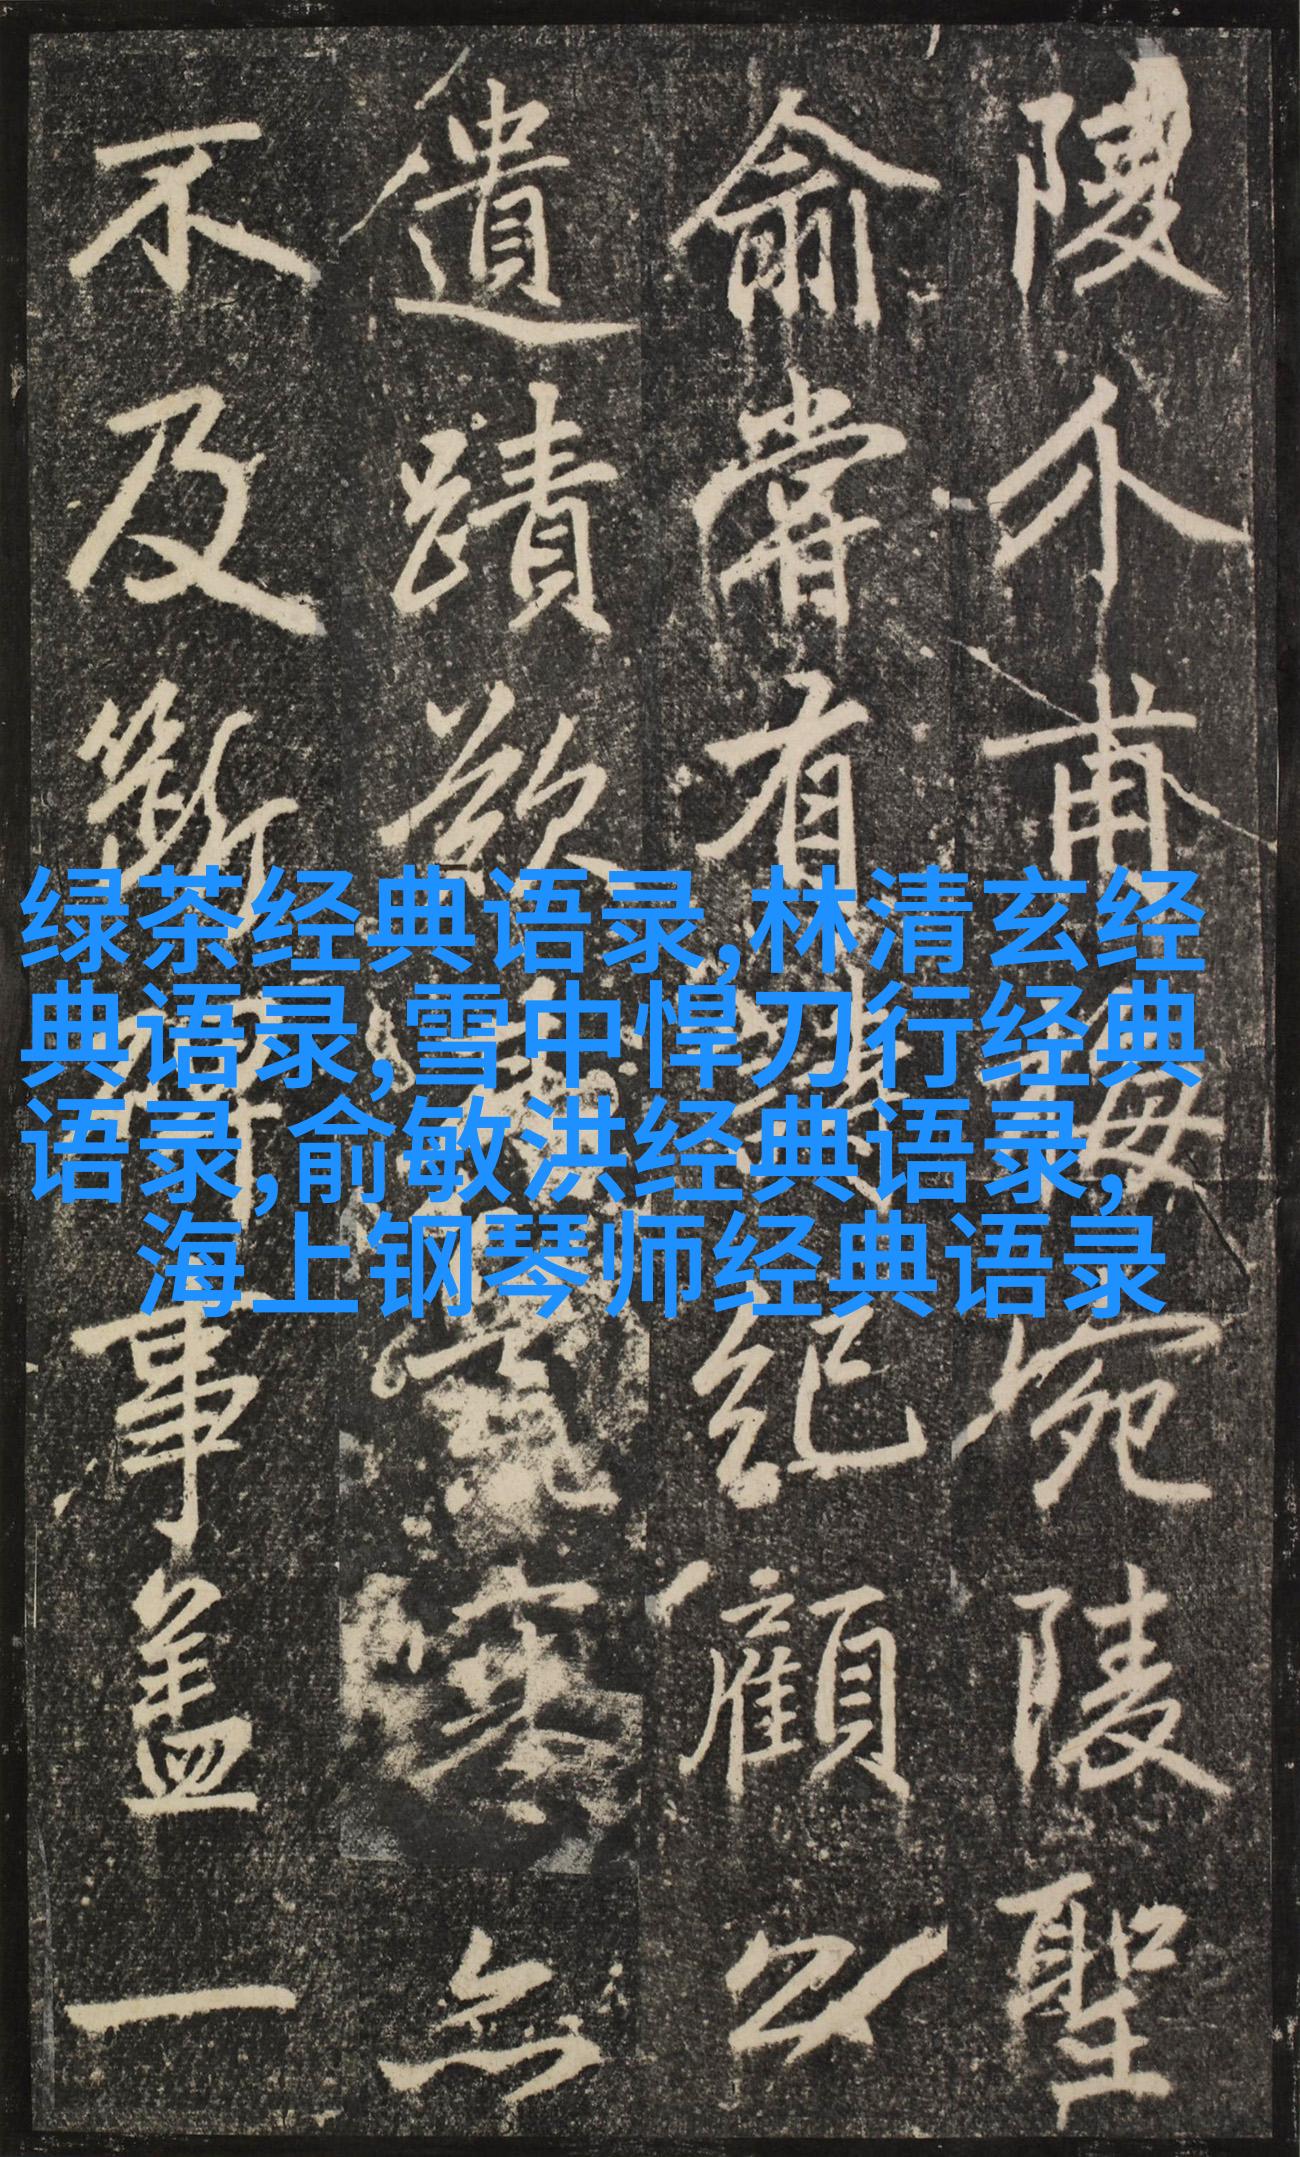 绿茶经典语录,林清玄经
典语录,雪中悍刀行经典
语录,俞敏洪经典语录,
海上钢琴师经典语录
陵介甫宛陵聖
俞嘗有紀顧公
遺蹟欲寒無
不及斷事蓋一